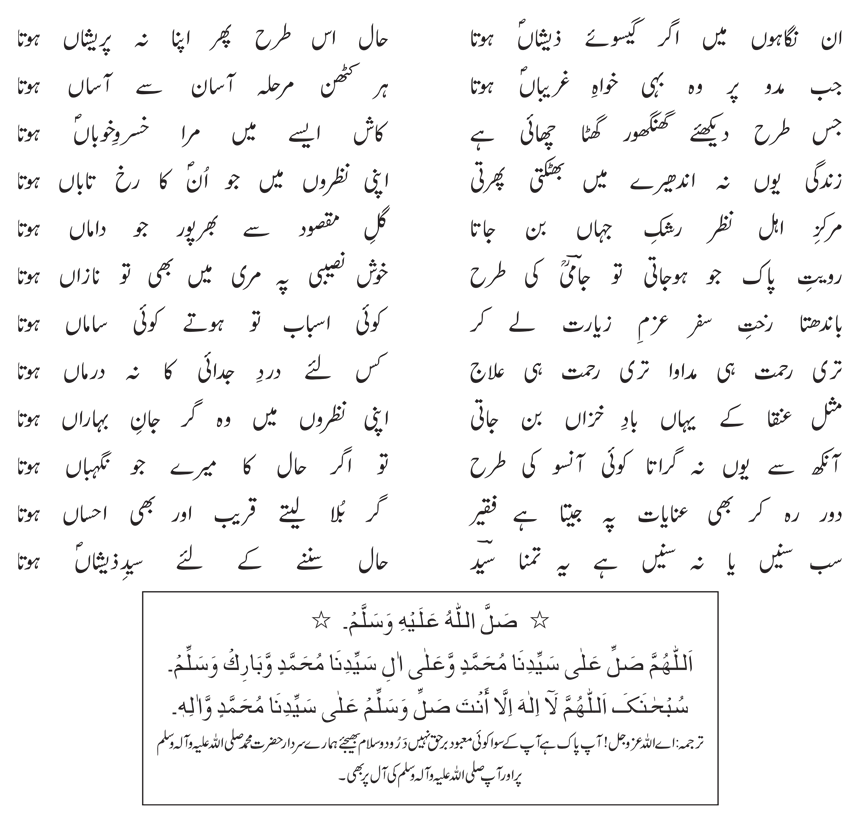 ان نگاہوں میں اگر گیسوئے ذیشاںؐ ہوتا حال اس طرح پھر اپنا نہ پریشاں ہوتا
جب مدو پر وہ بہی خواہِ غریباںؐ ہوتا ہر کٹھن مرحلہ آسان سے آساں ہوتا
جس طرح دیکھئے گھنگھور گھٹا چھائی ہے کاش ایسے میں مرا خسروِخوباںؐ ہوتا
زندگی یوں نہ اندھیرے میں بھٹکتی پھرتی اپنی نظروں میں جو اُنؐ کا رخ تاباں ہوتا
مرکزِ اہل نظر رشکِ جہاں بن جاتا گلِ مقصود سے بھرپور جو داماں ہوتا
رویتِ پاک جو ہوجاتی تو جامیؒ کی طرح خوش نصیبی پہ مری میں بھی تو نازاں ہوتا
باندھتا رختِ سفر عزمِ زیارت لے کر کوئی اسباب تو ہوتے کوئی ساماں ہوتا
تری رحمت ہی مداوا تری رحمت ہی علاج کس لئے دردِ جدائی کا نہ درماں ہوتا
مثل عنقا کے یہاں بادِ خزاں بن جاتی اپنی نظروں میں وہ گر جانِ بہاراں ہوتا
آنکھ سے یوں نہ گراتا کوئی آنسو کی طرح تو اگر حال کا میرے جو نگہباں ہوتا
دور رہ کر بھی عنایات پہ جیتا ہے فقیر گر بُلا لیتے قریب اور بھی احساں ہوتا
سب سنیں یا نہ سنیں ہے یہ تمنا سیدؔ حال سننے کے لئے سیدِذیشاںؐ ہوتا
☆ صَلَّ اللّٰهُ عَلَيْهِ وَسَلَّمْ۔ ☆
اَللّٰهُمَّ صَلِّ عَلٰى سَيِّدِنَا مُحَمَّدٍ وَّعَلٰى اٰلِ سَيِّدِنَا مُحَمَّدٍ وَّبَارِكْ وَسَلِّمْ۔
سُبْحٰنَكَ اَللّٰهُمَّ لَآ اِلٰهَ اِلَّا أَنْتَ صَلِّ وَسَلِّمْ عَلٰى سَيِّدِنَا مُحَمَّدٍ وَّاٰلِهٖ۔
ترجمہ: اے اللہ عزوجل! آپ پاک ہے آپ کے سوا کوئی معبود برحق نہیں دَرُود و سلام بھیجئے ہمارے سردار حضرت محمد صلی اللہ علیہ و آلہ وسلم
پر اور آپ صلی اللہ علیہ و آلہ وسلم کی آل پر بھی۔